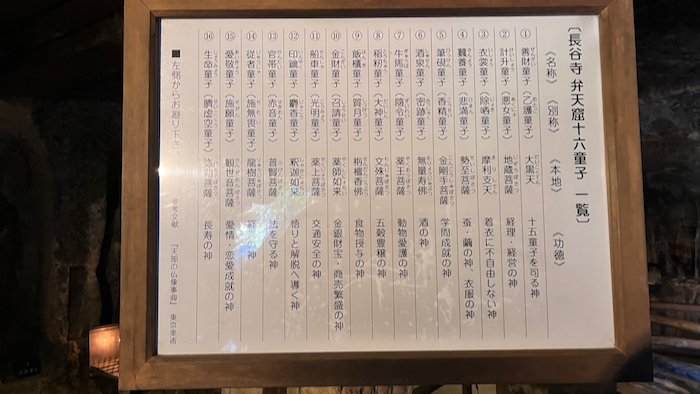 〔長谷寺 弁天窟十六童子 一覧〕
《名称》 《別称》 《本地》 《功徳》
① 善財童子 (乙護童子) 大黒天 十五童子を司る神
② 計升童子 (悪女童子) 地蔵菩薩 経理・経営の神
③ 衣裳童子 (除哂童子) 摩利支天 着衣に不自由しない神
④ 蠶養童子 (悲満童子) 勢至菩薩 蚕・繭の神、衣服の神
⑤ 筆硯童子 (香精童子) 金剛手菩薩 学問成就の神
⑥ 酒泉童子 (密跡童子) 無量寿佛 酒の神
⑦ 牛馬童子 (隨令童子) 薬王菩薩 動物愛護の神
⑧ 稲籾童子 (大神童子) 文殊菩薩 五穀豊穣の神
⑨ 飯櫃童子 (質月童子) 栴檀香佛 食物授与の神
⑩ 金財童子 (召請童子) 薬師如来 金銀財宝・商売繁盛の神
⑪ 船車童子 (光明童子) 薬上菩薩 交通安全の神
⑫ 印鑰童子 (麝香童子) 釈迦如来 悟りと解脱へ導く神
⑬ 官帯童子 (赤音童子) 普賢菩薩 法を守る神
⑭ 従者童子 (施無畏童子) 龍樹菩薩 の神
⑮ 愛敬童子 (施願童子) 観世音菩薩 愛情・恋愛成就の神
⑯ 生命童子 (臍虚空童子) 菩薩 長寿の神
■ 左側からお廻り下さい
参考文献 『天部の仏像事典』 東京美術